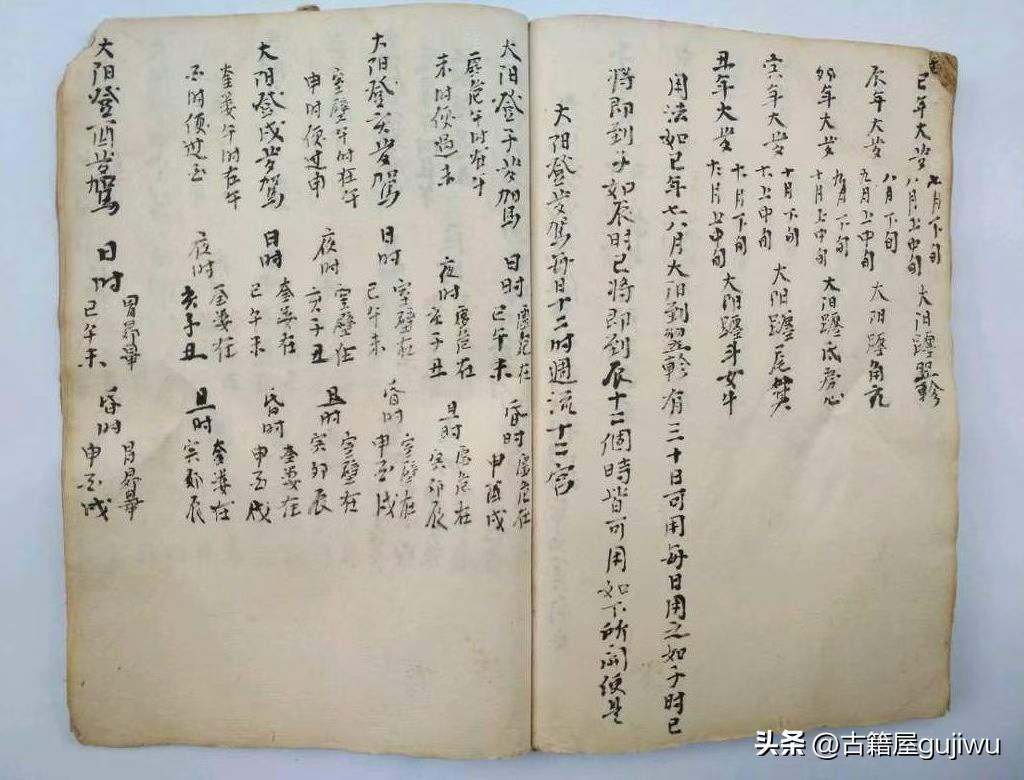 巳年大岁 七月下旬 八月上中旬 太阳躔翌轸
辰年大岁 八月下旬 九月上中旬 太阳躔角亢
卯年大岁 九月下旬 十月上中旬 太阳躔氐房心
寅年大岁 十月下旬 十一上中旬 太阳躔尾箕
丑年大岁 十一月下旬 十二月上中旬 太阳躔斗女牛
用法如巳年七八月太阳到翌軫有三十日可用每日用之如子时巳
将即到子如辰时巳将即到辰十二個時皆可用如下所開便是
太阳登岁驾每日十二时週流十二宫
太阳登子岁驾 日时 虚危在巳午未 昏时 虚危在申酉戌
虚危午时在午未时便過未 夜时 虚危在亥子丑 旦时 虚危在寅卯辰
太阳登亥岁驾 日时 室壁在巳午未 昏时 室壁在申酉戌
室壁午时在午申时便过申 夜时 室壁在亥子丑 旦时 室壁在寅卯辰
太阳登戌岁驾 日时 奎娄在巳午未 昏时 奎娄在申酉戌
奎娄午时在午 夜时 奎娄在亥子丑 旦时 奎娄在寅卯辰
太阳登酉岁驾 日时 胃昴畢 巳午未 昏时 胃昴畢 申酉戌
头条 @古籍屋gujiwu